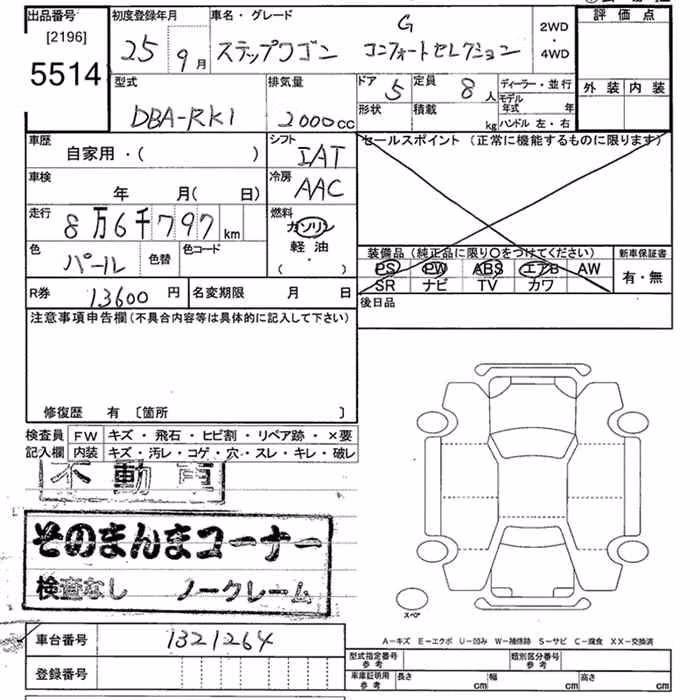 出品番号 初度登録年月 車名・グレード 評価点
[2196] 25 9月 ステップワゴン G コンフォートセレクション 2WD・4WD
5514
外装 内装
型式 DBA-RK1 排気量 2000cc ドア 5 定員 8人 ディーラー・並行
形状 積載 kg モデル年式 年
ハンドル 左・右
車歴 自家用・( ) シフト IAT セールスポイント (正常に機能するものに限ります)
車検 年 月( 日) 冷房 AAC
走行 8万6千797km 燃料 ガソリン
軽油
・
( )
色 パール 色替 色コード 装備品 (純正品に限り○をつけてください) 新車保証書
PS PW ABS エアB AW 有・無
R券 13600円 名変期限 月 日 SR ナビ TV カワ
後日品
注意事項申告欄(不具合内容等は具体的に記入して下さい)
修復歴 有 〔箇所 〕
検査員 FW キズ・飛石・ヒビ割・リペア跡・×要
記入欄 内装 キズ・汚レ・コゲ・穴・スレ・キレ・破レ
不動車
そのまんまコーナー
検査なし ノークレーム
スペア
A-キズ E-エクボ U-凹み W-補修跡 S-サビ C-腐食 XX-交換済
車台番号 1321264
型式指定番号 参考 類別区分番号 参考
登録番号 車庫証明用 参考 長さ cm 幅 cm 高さ cm